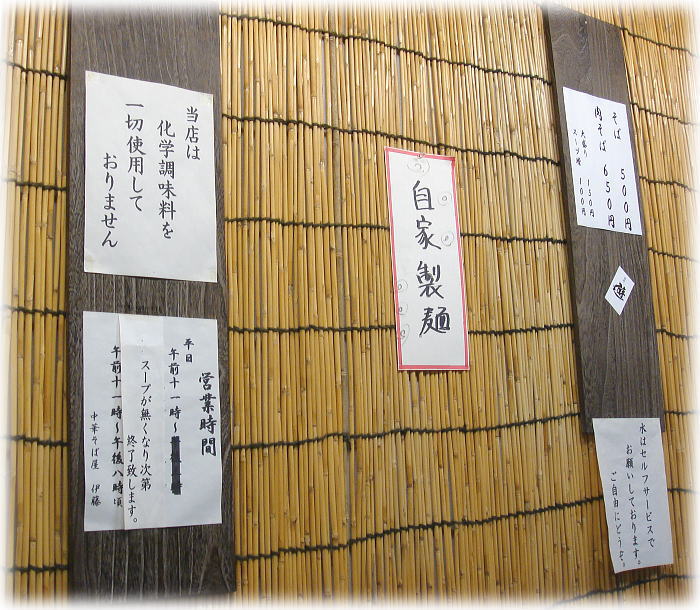 そば 500円
肉そば 650円
大盛り 150円
スープ増 100円
水はセルフサービスで
お願いしております。
ご自由にどうぞ。
自家製麺
当店は
化学調味料を
一切使用して
おりません
営業時間
平日
午前十一時〜
スープが無くなり次第
終了致します。
午前十一時〜午後八時頃
中華そば屋 伊藤